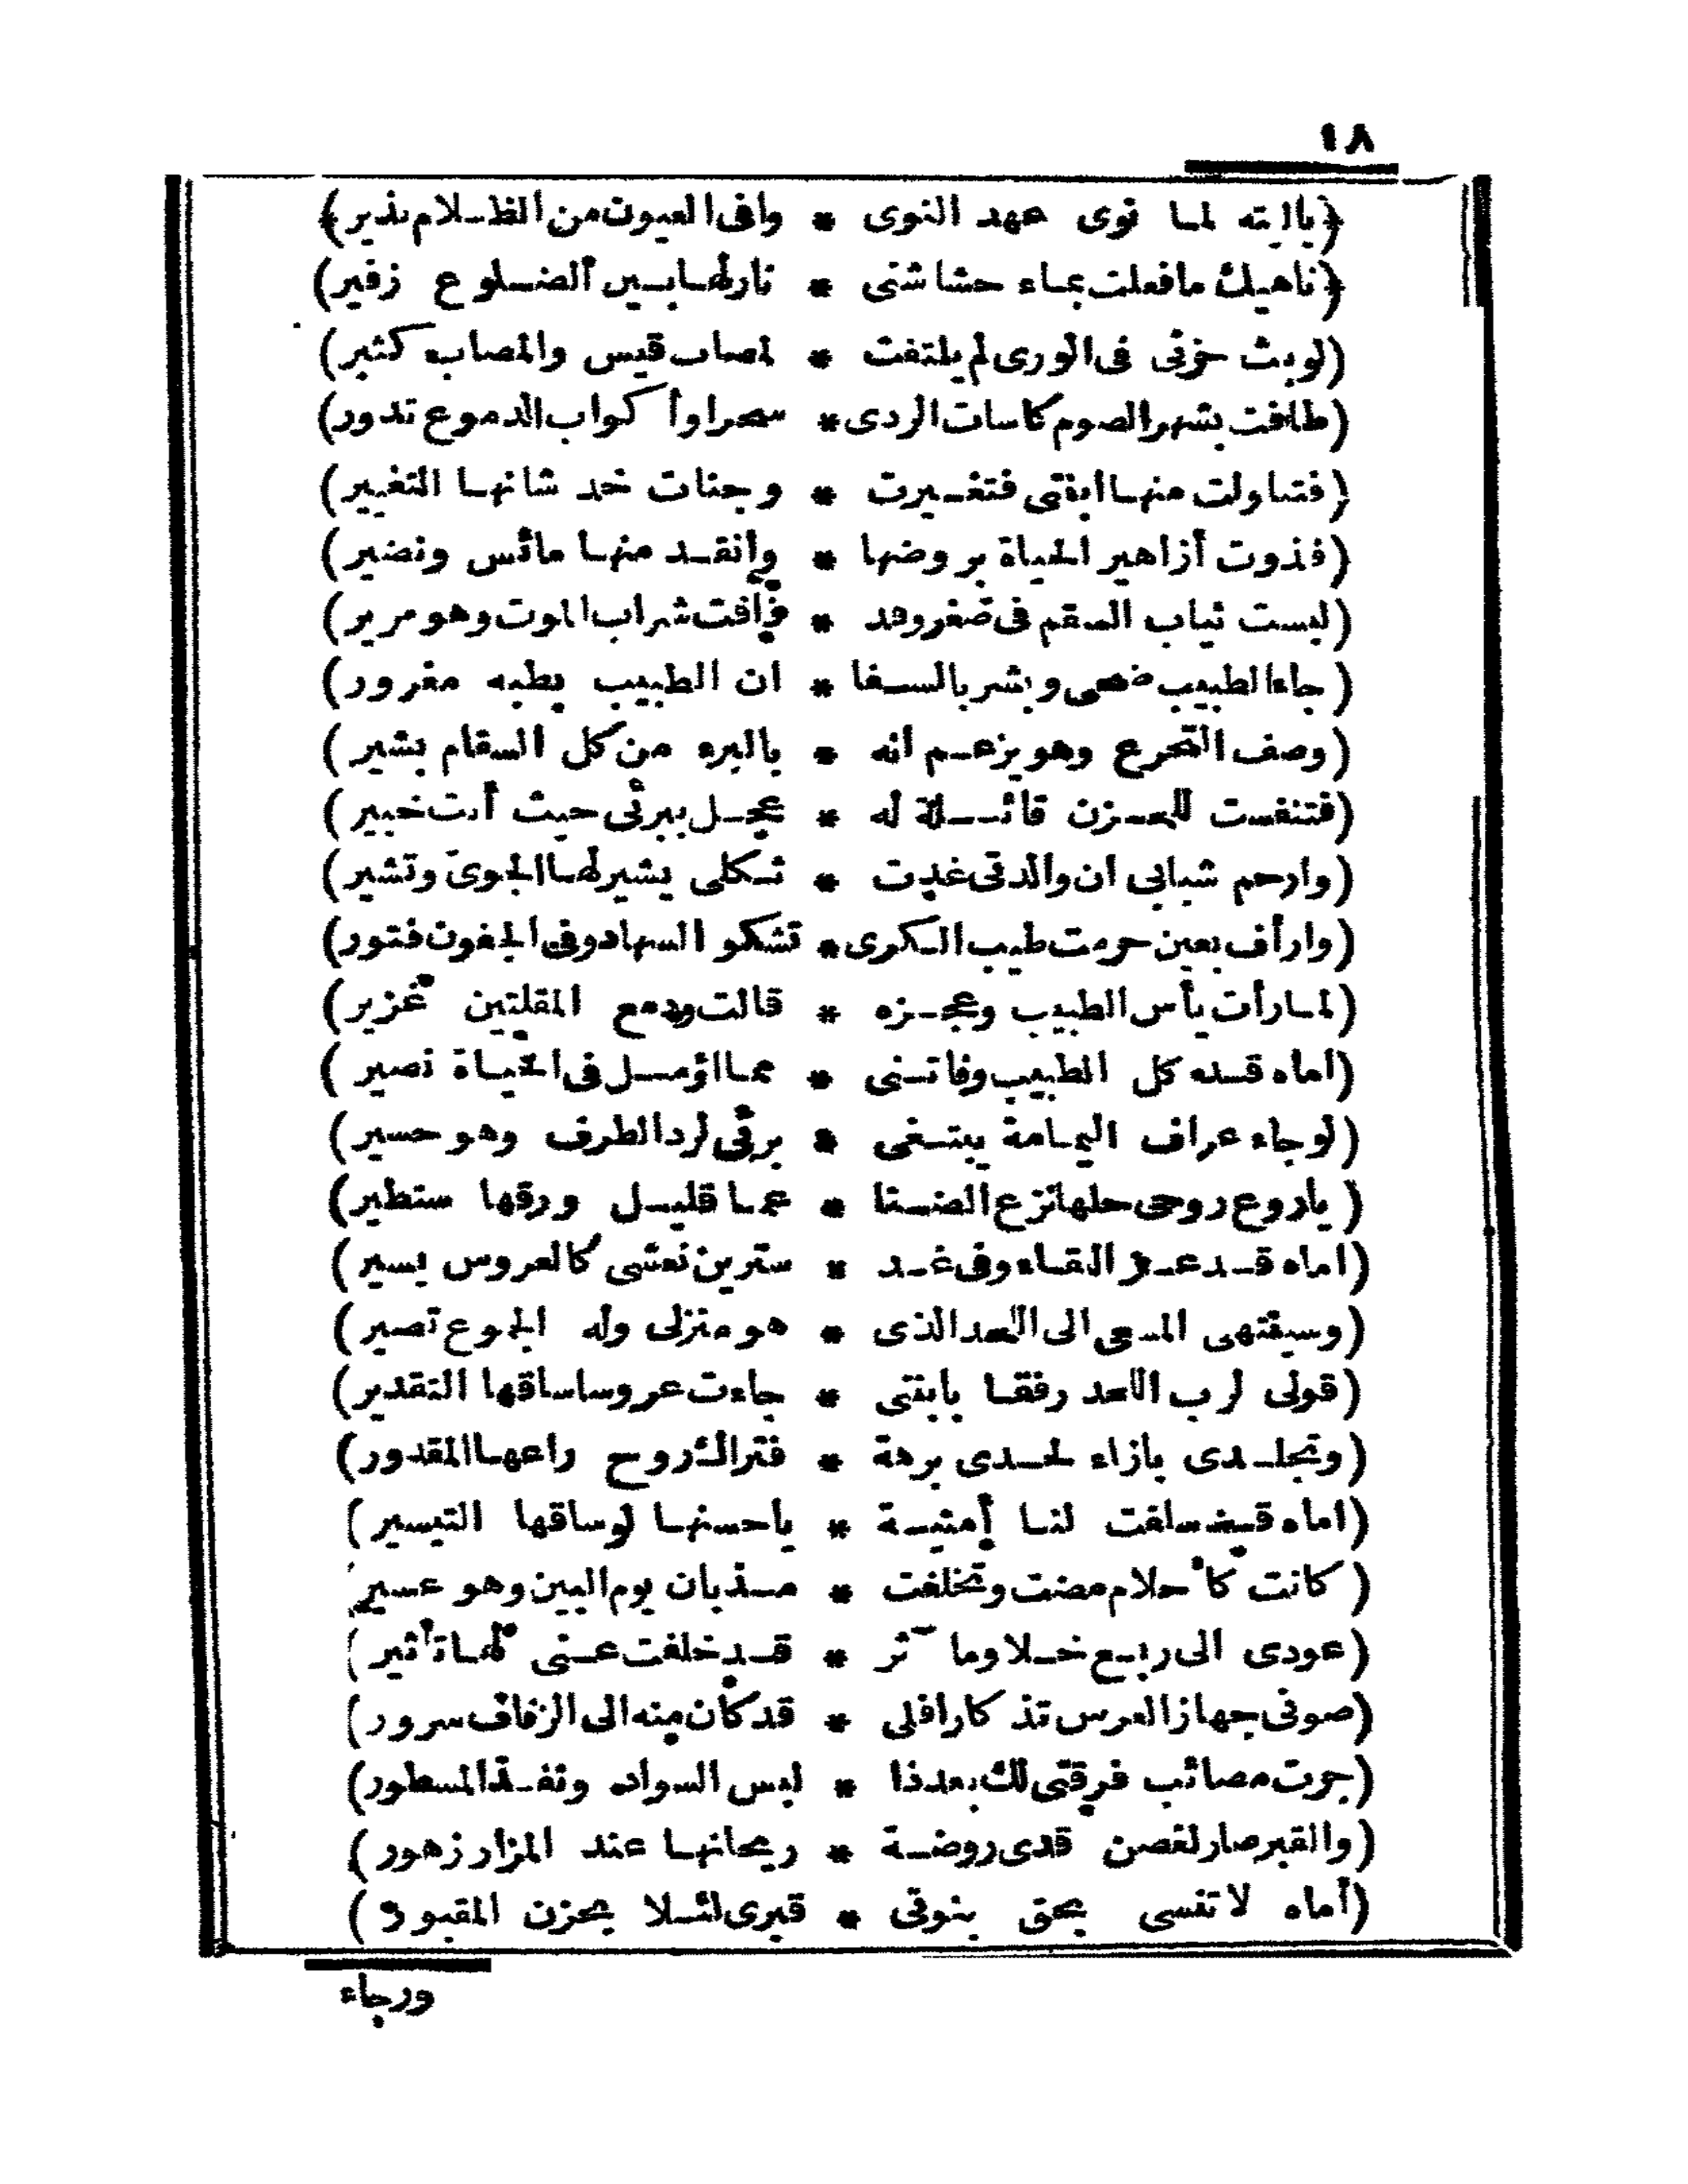 ١٨
(ياليته لما نوى عهد النوى * وافى العيون من الظلام نذير)
(ناهيك ما فعلت بماء حشاشتى * نار لها بين الضلوع زفير)
(لو بث حزنى فى الورى لم يلتفت * لمصاب قيس والمصاب كثير)
(طافت بشهر الصوم كاسات الردى * سحرا وأكواب الدموع تدور)
(فتناولت منها ابنتى فتغيرت * وجنات خد شانها التغيير)
(فذوت أزاهير الحياة بروضها * وانقد منها مائس ونضير)
(لبست ثياب السقم فى صغر وقد * ذاقت شراب الموت وهو مرير)
(جاء الطبيب ضحى وبشر بالشفا * ان الطبيب بطبه مغرور)
(وصف التجرع وهو يزعم أنه * بالبرء من كل السقام بشير)
(فتنفست للحزن قائلة له * عجل ببرئى حيث أنت خبير)
(وارحم شبابى ان والدتى غدت * ثكلى يشير لها الجوى وتشير)
(وارأف بعين حرمت طيب الكرى * تشكو السهاد وفى الجفون فتور)
(لما رأت يأس الطبيب وعجزه * قالت ودمع المقلتين غزير)
(اماه قد كل الطبيب وفاتنى * مما اؤمل فى الحياة نصير)
(لو جاء عراف اليمامة يبتغى * برئى لرد الطرف وهو حسير)
(ياروع روحى حلها نزع الضنا * عما قليل ورقها ستطير)
(اماه قد عز اللقاء وفى غد * سترين نعشى كالعروس يسير)
(وسينتهى المسعى الى اللحد الذى * هو منزلى وله الجموع تصير)
(قولى لرب اللحد رفقا بابنتى * جاءت عروسا ساقها التقدير)
(وتجلدى بازاء لحدى برهة * فتراك روح راعها المقدور)
(اماه قد سلفت لنا أمنية * ياحسنها لو ساقها التيسير)
(كانت كأحلام مضت وتخلفت * مذ بان يوم البين وهو عسير)
(عودى الى ربع خلا ومآثر * قد خلفت عنى لها تأثير)
(صونى جهاز العرس تذكارا فلى * قد كان منه الى الزفاف سرور)
(جرت مصائب فرقتى لك بعد ذا * لبس السواد ونفذ المسطور)
(والقبر صار لغصن قدى روضة * ريحانها عند المزار زهور)
(أماه لا تنسى بحق بنوتى * قبرى لئلا يحزن المقبور)
ورجاء